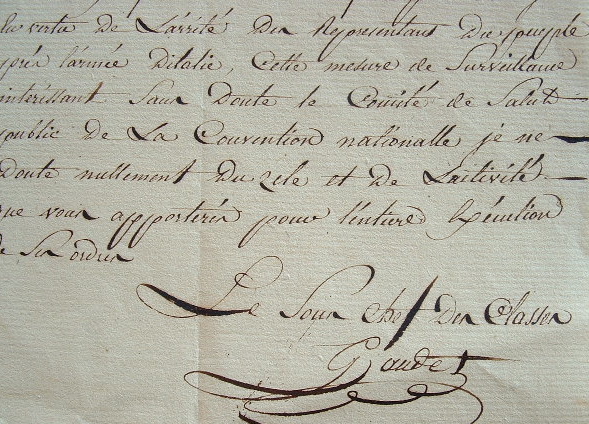 En vertu de L'arrêté Des Représentans Du peuple
près l'armée D'italie, Cette mesure de Surveillance
interessant Sans Doute le Comité de Salut
public de La Convention nationalle je ne
Doute nullement Du zele et de Lactivité
que vous apporterés pour l'entiere Exécution
de Ses ordres
Le Sous Chef Des Classes
Gaudet